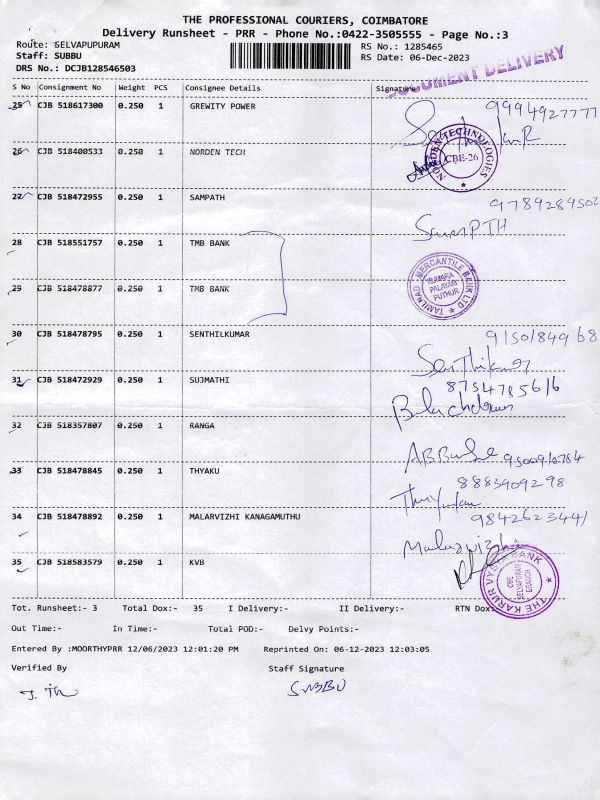 THE PROFESSIONAL COURIERS, COIMBATORE
Delivery Runsheet - PRR - Phone No.:0422-3505555 - Page No.:3
Route: SELVAPUPURAM
Staff: SUBBU
DRS No.: DCJB128546503
RS No.: 1285465
RS Date: 06-Dec-2023
DOCUMENT DELIVERY
S No Consignment No Weight PCS Consignee Details Signature
25 CJB 518617300 0.250 1 GREWITY POWER 9994927777
26 CJB 518400533 0.250 1 NORDEN TECH
NORDEN TECHNOLOGIES
CBE-26
27 CJB 518472955 0.250 1 SAMPATH 9789289502
SamPTH
28 CJB 518551757 0.250 1 TMB BANK
29 CJB 518478877 0.250 1 TMB BANK
TAMILNAD MERCANTILE BANK LTD
KUMARA
PALAYAM
PUTHUR
30 CJB 518478795 0.250 1 SENTHILKUMAR 9150184968
Senthikumar
31 CJB 518472929 0.250 1 SUJMATHI 8754785616
32 CJB 518357807 0.250 1 RANGA
33 CJB 518478845 0.250 1 THYAKU 8883909298
34 CJB 518478892 0.250 1 MALARVIZHI KANAGAMUTHU 9842623441
Malarvizhi
35 CJB 518583579 0.250 1 KVB
THE KARUR VYSYA BANK
CBE
SELVAPURAM
BRANCH
Tot. Runsheet:- 3 Total Dox:- 35 I Delivery:- II Delivery:- RTN Dox:
Out Time:- In Time:- Total POD:- Delvy Points:-
Entered By :MOORTHYPRR 12/06/2023 12:01:20 PM Reprinted On: 06-12-2023 12:03:05
Verified By Staff Signature
SUBBU